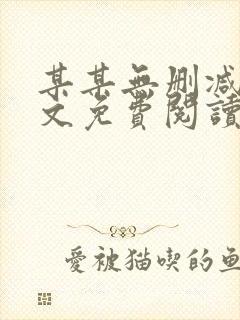 某某無刪減
文免費閱讀
愛被猫喫的魚